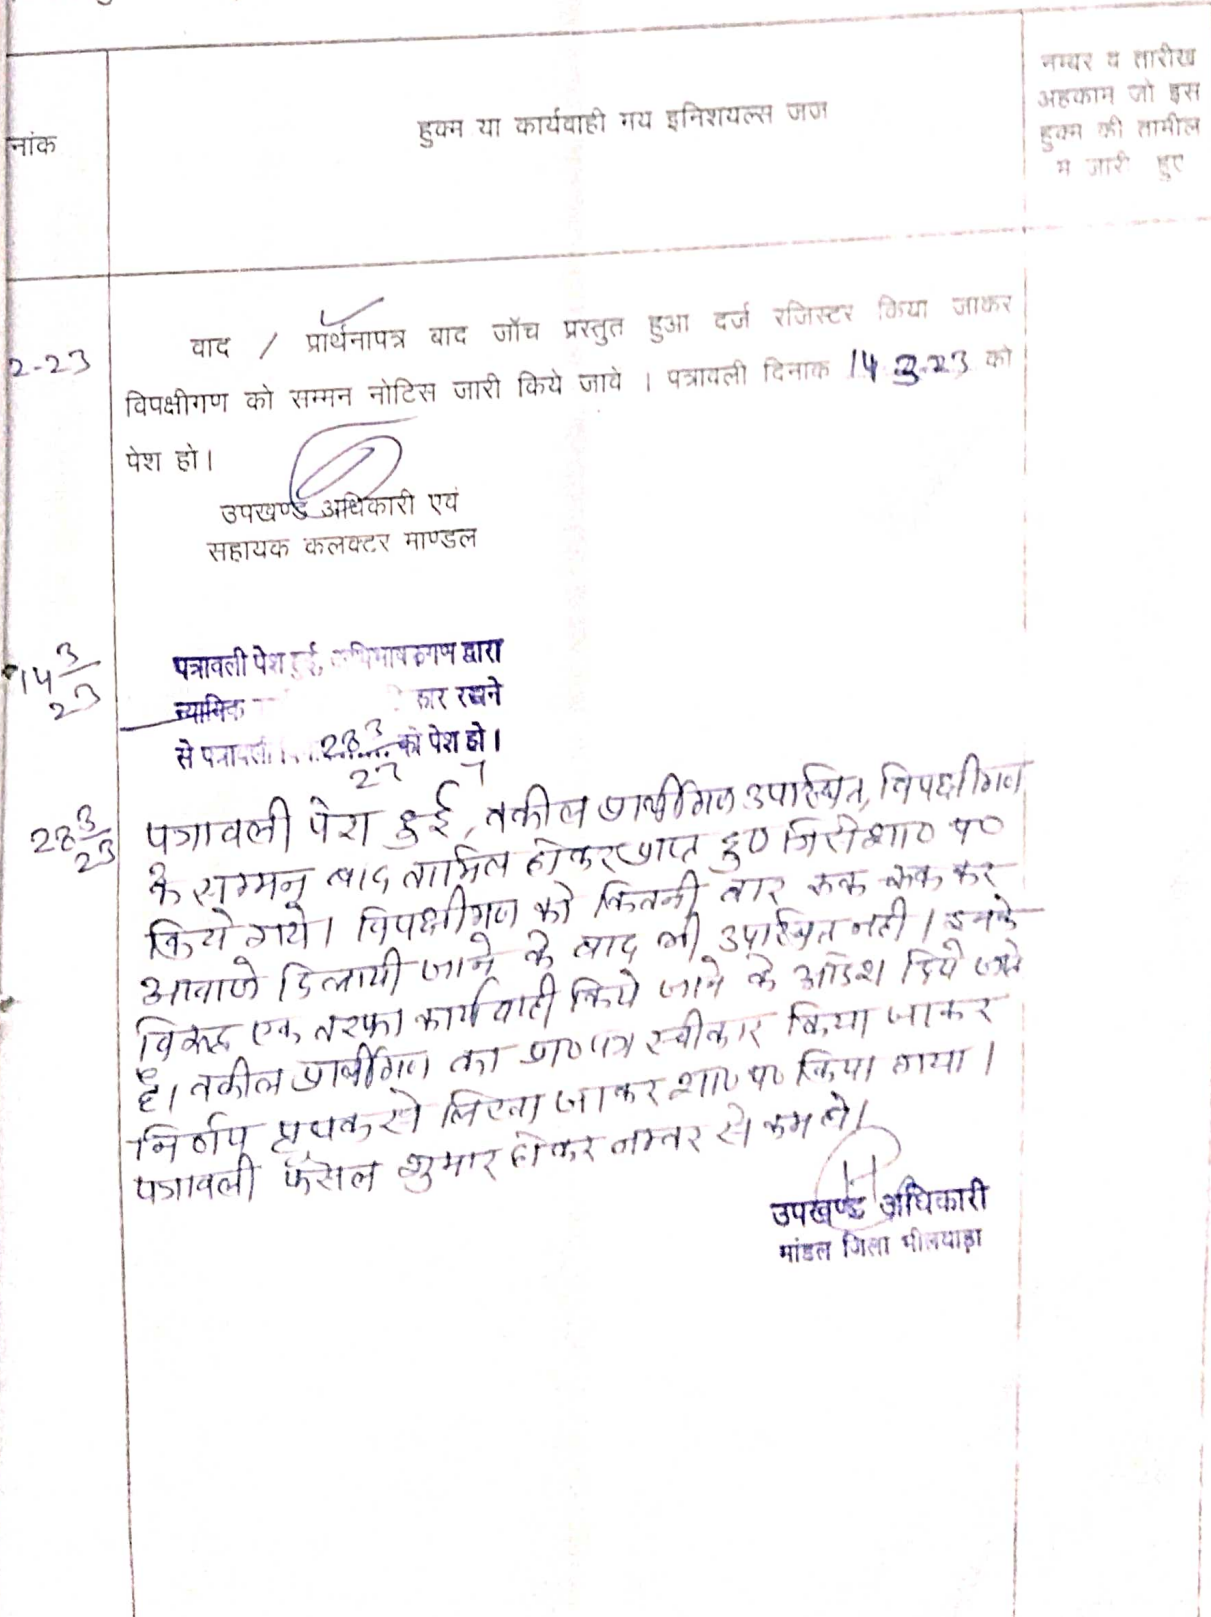 नांक
हुक्म या कार्यवाही मय इनिशयल्स जज
नम्बर व तारीख
अहकाम जो इस
हुक्म की तामील
में जारी हुए
2-23
वाद / प्रार्थनापत्र बाद जॉच प्रस्तुत हुआ दर्ज रजिस्टर किया जाकर
विपक्षीगण को सम्मन नोटिस जारी किये जावे । पत्रावली दिनाक 14 3-23 को
पेश हो।
उपखण्ड अधिकारी एवं
सहायक कलक्टर माण्डल
14 3/23
पत्रावली पेश हुई, द्वारा
न्यायिक रखने
से पत्रावली 28 3/23 को पेश हो।
28 3/23
पत्रावली पेश हुई, वकील प्रार्थीगण उपस्थित, विपक्षीगण
के सम्मन बाद तामिल होकर प्राप्त हुए जिसे शा० प०
किये गये। विपक्षीगण को कितनी बार रूक रूक कर
आवाजे दिलायी जाने के बाद भी उपस्थित नही। इनके
विरूद्ध एक तरफा कार्यवाही किये जाने के आदेश दिये जाते
है। वकील प्रार्थीगण का प्रा०पत्र स्वीकार किया जाकर
निर्णय पृथक से लिखा जाकर शा० प० किया गया।
पत्रावली फैसल शुमार होकर नम्बर से कम हो।
उपखण्ड अधिकारी
मांडल जिला भीलवाड़ा